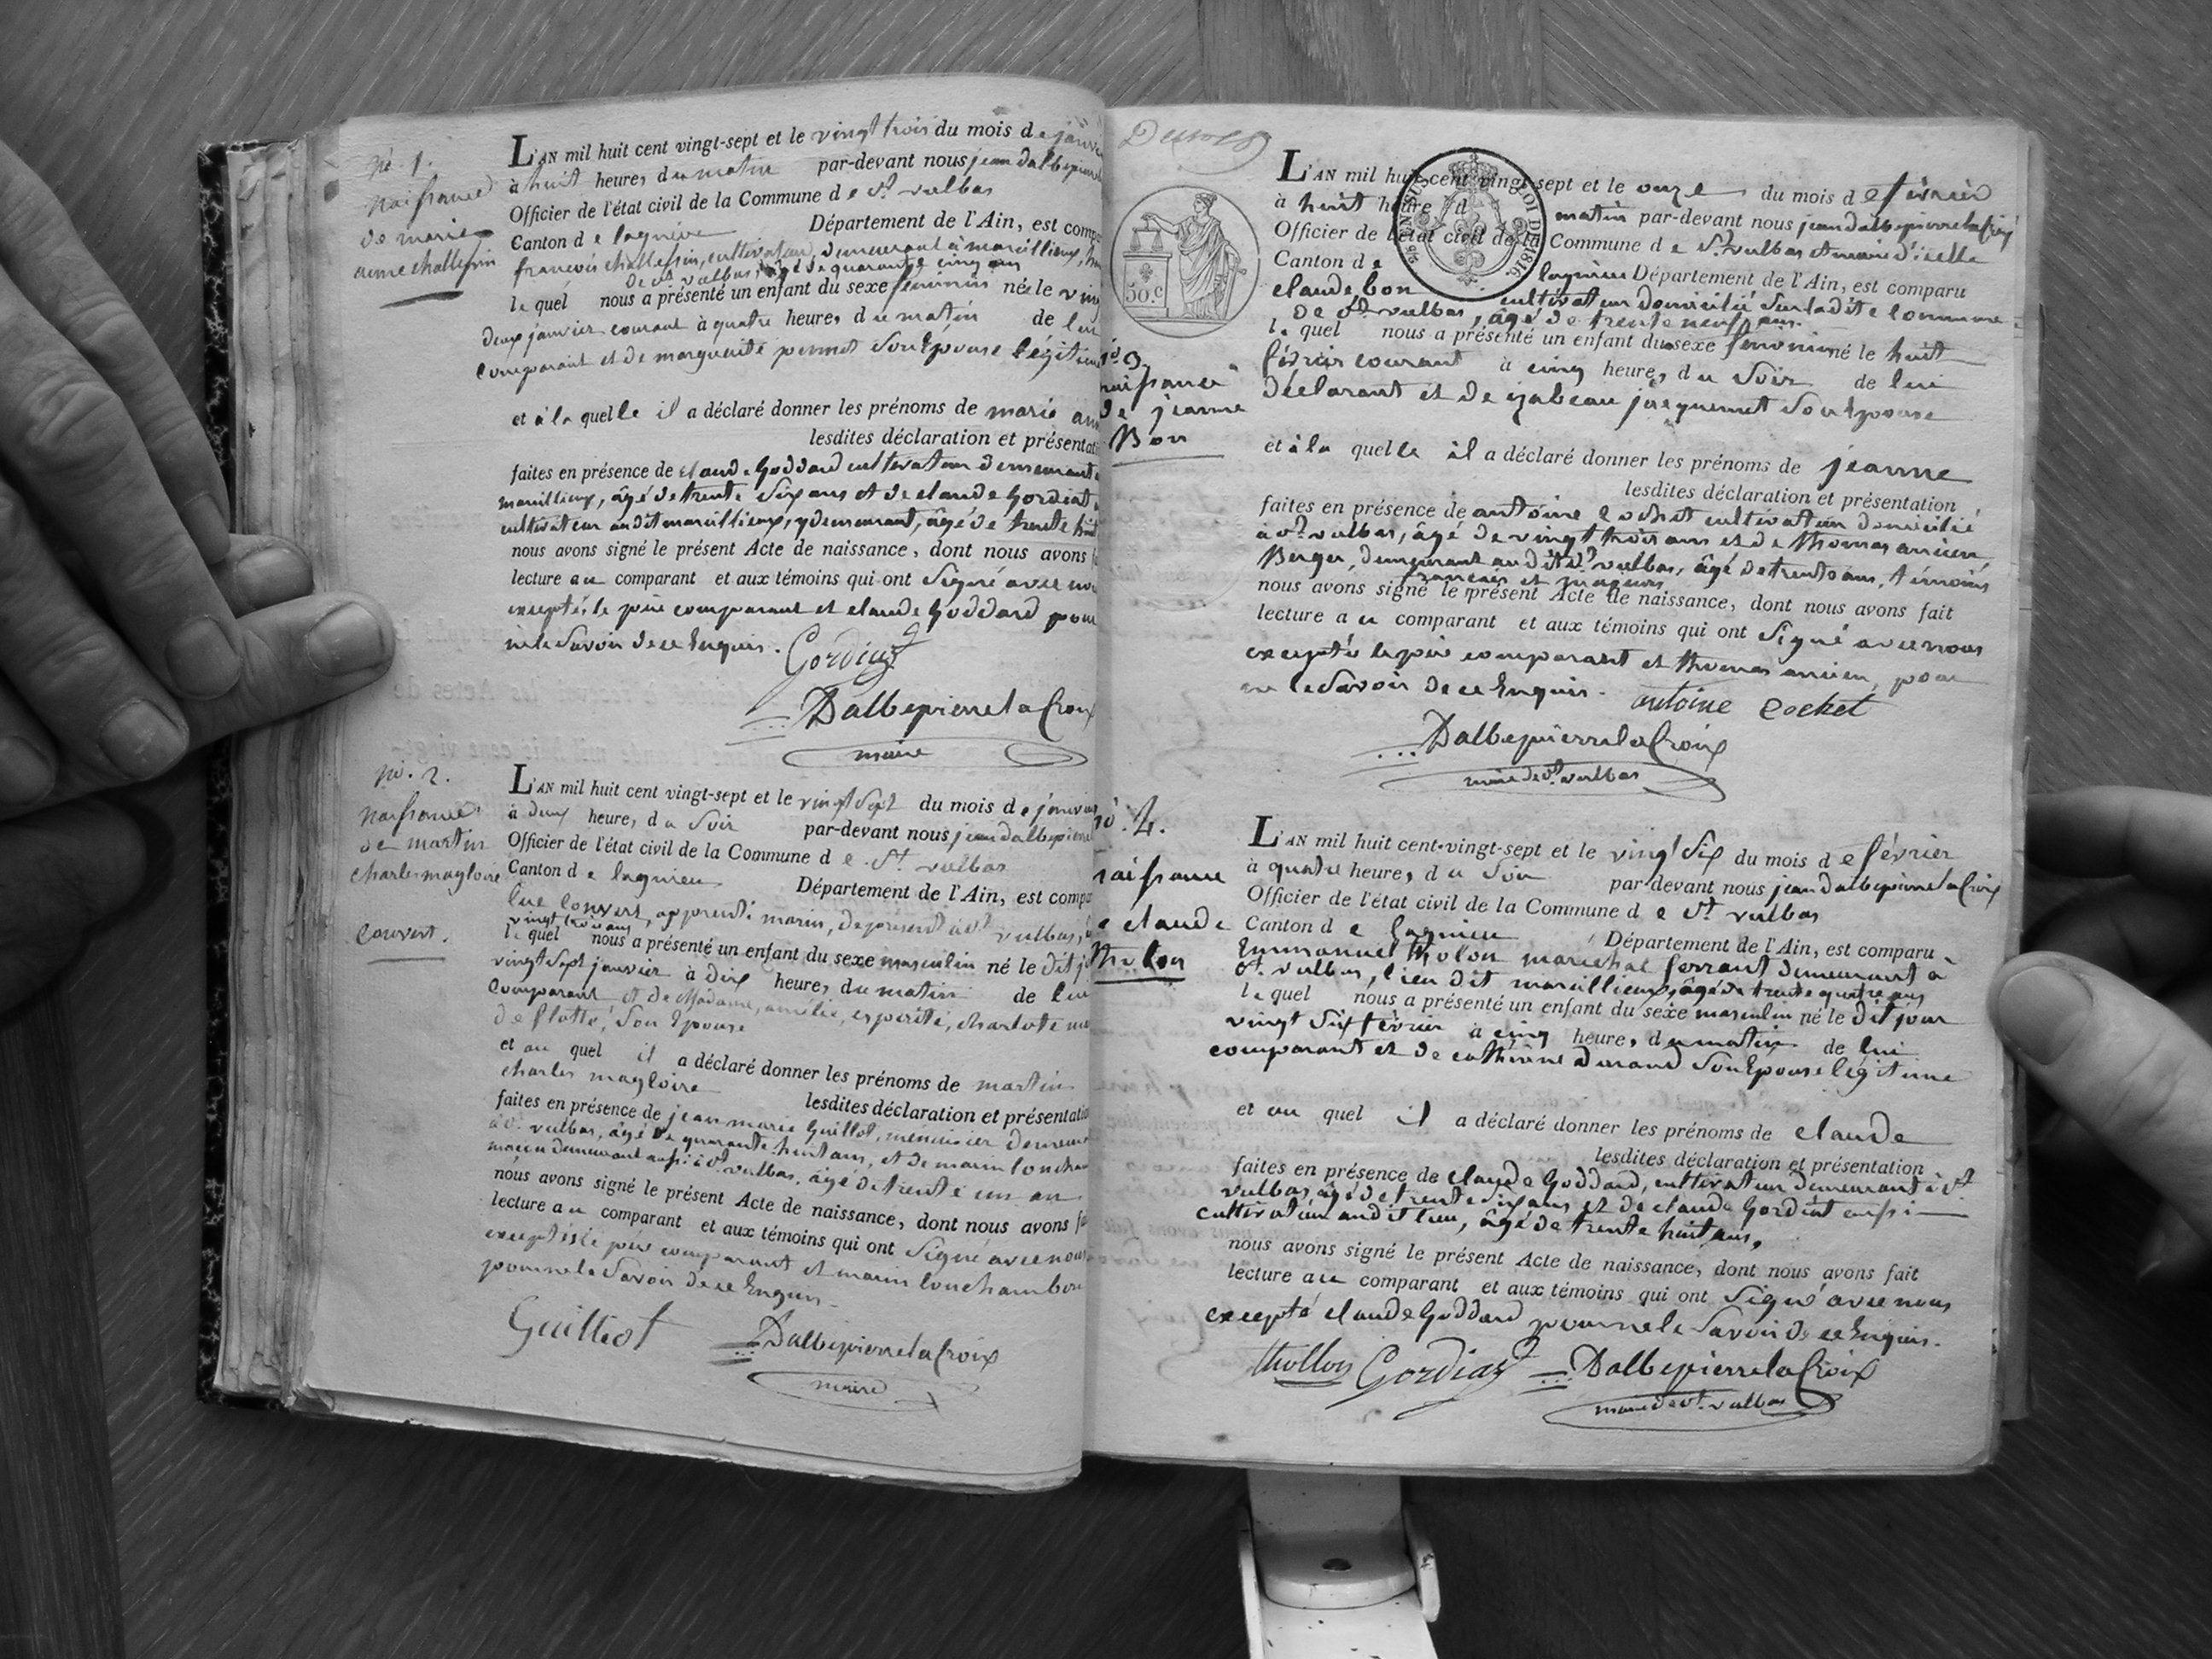 nº. 1.
naissance
de marie
anne challessin
L'AN mil huit cent vingt-sept et le vingt trois du mois de janvi
à huit heures du matin par-devant nous jean dalbepierre
Officier de l'état civil de la Commune de St. vulbas
Canton de lagnieu Département de l'Ain, est comp
françois challessin, cultivateur, demeurant à marcillieux,
de St. vulbas, âgé de quarante cinq ans
lequel nous a présenté un enfant du sexe féminin née le ving
deux janvier courant à quatre heures du matin de lui
comparant et de marguerite permet son Epouse légitime
et à la quelle il a déclaré donner les prénoms de marie ann
lesdites déclaration et présentati
faites en présence de claude Goddard cultivateur demeurant
marcillieux, âgé de trente six ans et de claude Gordiat
cultivateur audit marcillieux, y demeurant, âgé de trente huit
nous avons signé le présent Acte de naissance, dont nous avons f
lecture au comparant et aux témoins qui ont signé avec nou
exceptés le père comparant et claude Goddard pour
ne le savoir de ce Enquis. Gordiat
DalbepierrelaCroix
maire
nº. 2.
naissance
de martin
charles magloire
Convert.
L'AN mil huit cent vingt-sept et le vingt sept du mois de janvier
à deux heures du soir par-devant nous jean dalbepierre
Officier de l'état civil de la Commune de St. vulbas
Canton de lagnieu Département de l'Ain, est compa
luc Convert, apprenti marin, de présent à St. vulbas,
vingt trois ans
lequel nous a présenté un enfant du sexe masculin né le dit j
vingt sept janvier à dix heures du matin de lui
comparant et de Madame, amélie, espérité, charlote
de flotte, son Epouse
et au quel il a déclaré donner les prénoms de martin
charles magloire lesdites déclaration et présentatio
faites en présence de jean marie Guillot, menuisier demeur
à St. vulbas, âgé de quarante huit ans, et de marin Concham
maçon demeurant aussi à St. vulbas, âgé de trente un an
nous avons signé le présent Acte de naissance, dont nous avons fa
lecture au comparant et aux témoins qui ont signé avec nous
exceptés le père comparant et marin Conchambon
pour ne le savoir de ce Enquis
Guilliot DalbepierrelaCroix
maire
nº 3.
naissance
de jeanne
Bon
50.c
L'AN mil huit cent vingt-sept et le onze du mois de février
à huit heures du matin par-devant nous jean dalbepierrelaCroix
Officier de l'état civil de la Commune de St. vulbas et maire d'icelle
Canton de lagnieu Département de l'Ain, est comparu
claude bon cultivateur domicilié sur ladite Commune
de St. vulbas, âgé de trente neuf ans.
lequel nous a présenté un enfant du sexe féminin né le huit
février courant à cinq heures du soir de lui
déclarant et de izabeau jacquemet son Epouse
et à la quelle il a déclaré donner les prénoms de jeanne
lesdites déclaration et présentation
faites en présence de antoine Cochet cultivateur domicilié
à St. vulbas, âgé de vingt trois ans et de thomas ancien
Berger, demeurant audit St. vulbas, âgé de trente ans, témoins
français et majeurs
nous avons signé le présent Acte de naissance, dont nous avons fait
lecture au comparant et aux témoins qui ont signé avec nous
excepté le père comparant et thomas ancien, pour
ne le savoir de ce Enquis. antoine Cochet
DalbepierrelaCroix
maire de St. vulbas
nº. 4.
naissance
de claude
tholon
L'AN mil huit cent vingt-sept et le vingt six du mois de février
à quatre heures du soir par-devant nous jean dalbepierrelaCroix
Officier de l'état civil de la Commune de St. vulbas
Canton de lagnieu Département de l'Ain, est comparu
Emmanuel tholon maréchal ferrant demeurant à
St. vulbas, lieu dit marcillieux, âgé de trente quatre ans
lequel nous a présenté un enfant du sexe masculin né le dit jour
vingt six février à cinq heures du matin de lui
comparant et de cathérine Durand son Epouse légitime
et au quel il a déclaré donner les prénoms de claude
lesdites déclaration et présentation
faites en présence de claude Goddard, cultivateur demeurant à St.
vulbas, âgé de trente six ans et de claude Gordiat aussi
cultivateur audit lieu, âgé de trente huit ans,
nous avons signé le présent Acte de naissance, dont nous avons fait
lecture au comparant et aux témoins qui ont signé avec nous
excepté claude Goddard pour ne le savoir de ce Enquis.
thollon Gordiat DalbepierrelaCroix
maire de St. vulbas